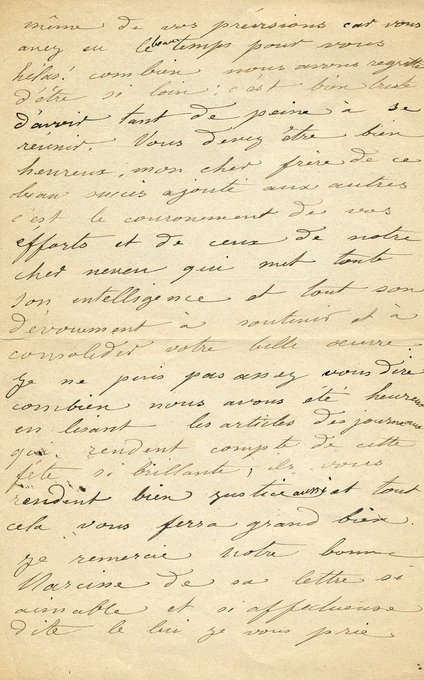 même de vos prévisions car vous
avez eu le beau temps pour vous
hélas! combien nous avons regretté
d'être si loin; c'est bien triste
d'avoir tant de peine à se
réunir. Vous devez être bien
heureux, mon cher frère de ce
beau succès ajouté aux autres
c'est le couronement de vos
éfforts et de ceux de notre
cher neveu qui met toute
son intelligence et tout son
dévouement à soutenir et à
consolider votre belle œuvre.
Je ne puis pas assez vous dire
combien nous avons été heureux
en lisant les articles des journeaux
qui rendent compte de cette
fête si brillante, ils vous
rendent bien justice aussi et tout
cela vous ferra grand bien.
Je remercie notre bonne
Narcisse de sa lettre si
aimable et si affectueuse
dite le lui je vous prie